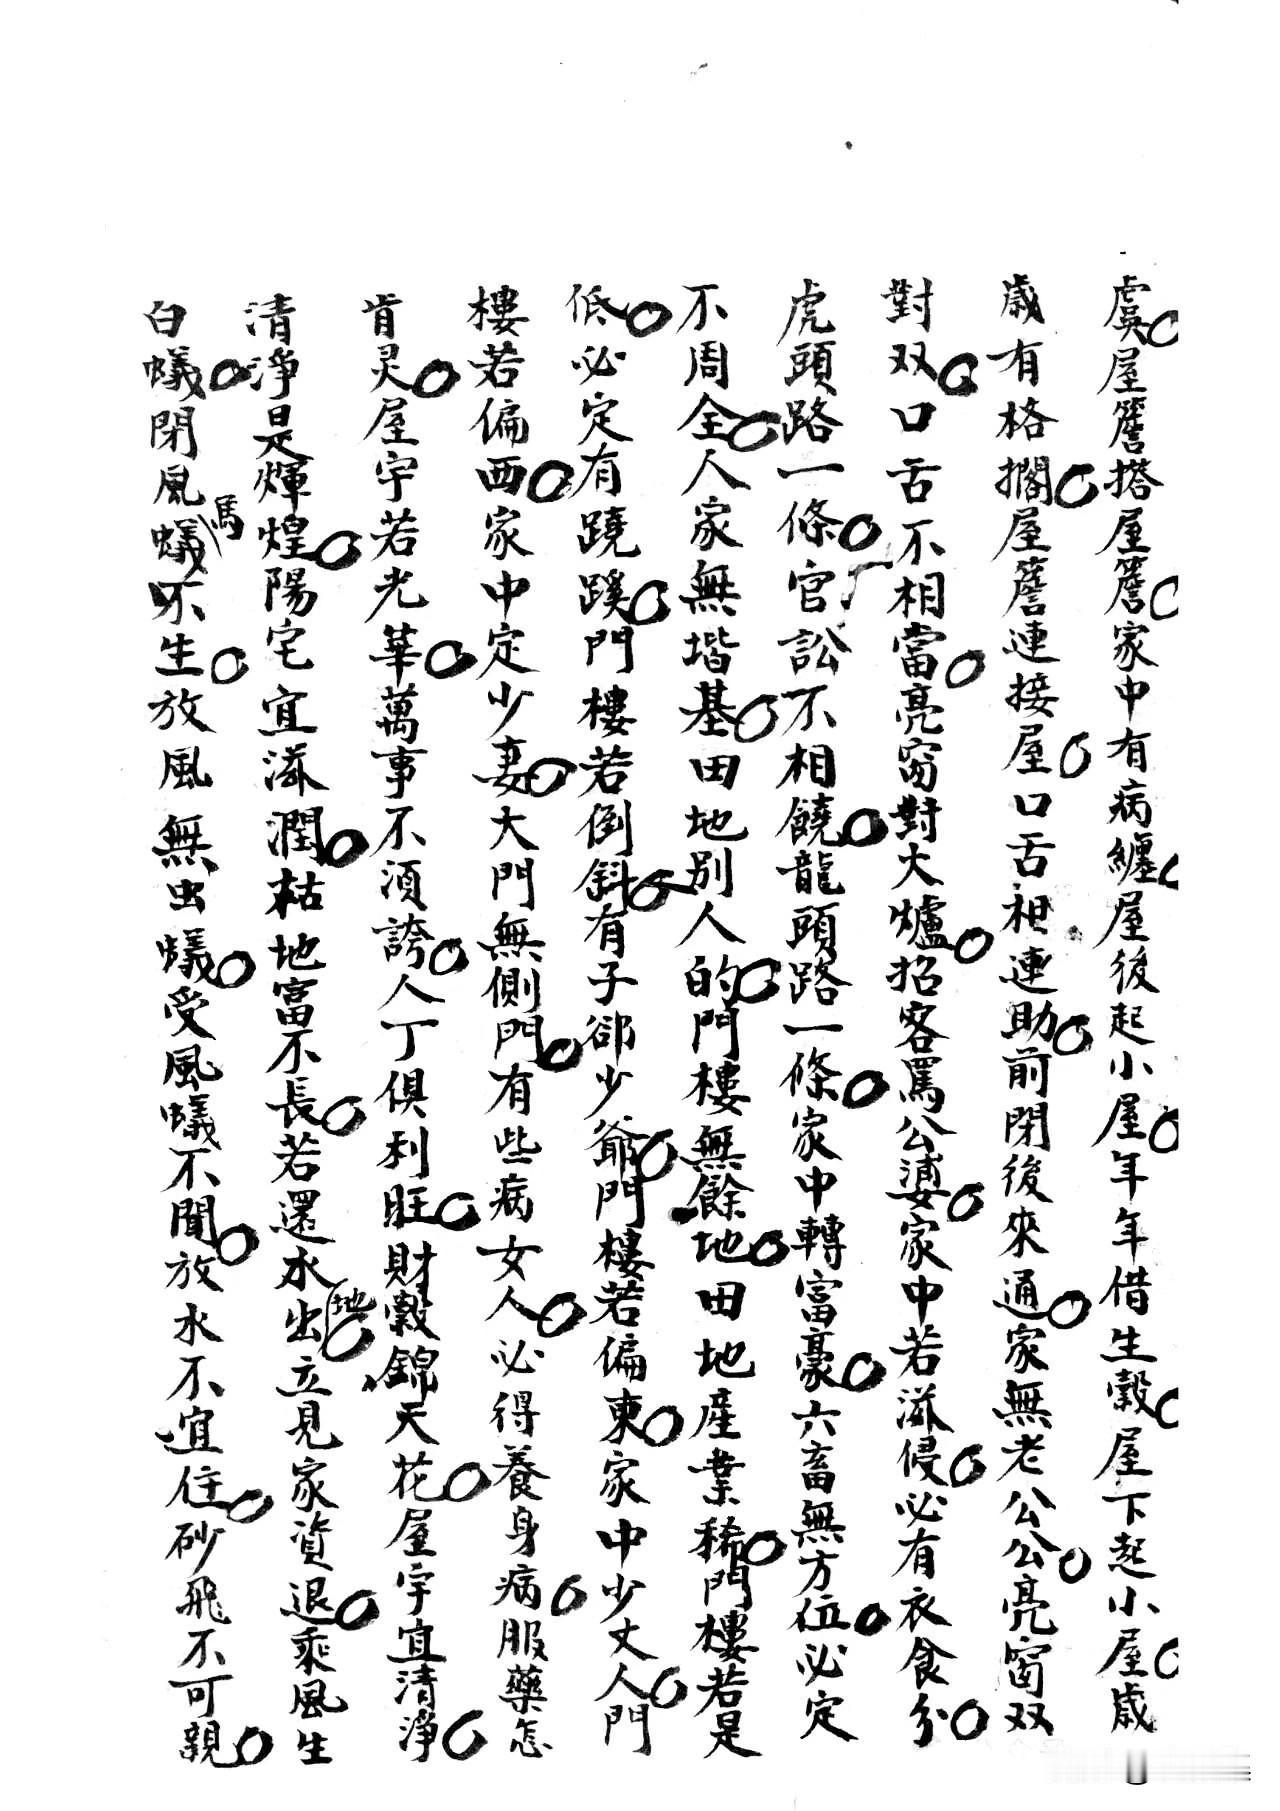 虞屋簷搭屋簷家中有病纏屋後起小屋年年借生穀屋下起小屋歲
歲有格擱屋簷連接屋口舌相連助前閉後來通家無老公公亮窗双
對双口舌不相當亮窗對大爐招客罵公婆家中若滋侵必有衣食分
虎頭路一條官訟不相饒龍頭路一條家中轉富豪六畜無方位必定
不周全人家無堦基田地別人的門樓無餘地田地産業稀門樓若是
低必定有蹺蹊門樓若倒斜有子郤少爺門樓若偏東家中少丈人門
樓若偏西家中定少妻大門無側門有些病女人必得養身病服藥怎
肯灵屋宇若光華萬事不須誇人丁俱利旺財穀錦天花屋宇宜清淨
清淨是煇煌陽宅宜滋潤枯地富不長若還水出地立見家資退乘風生
白蟻閉風蟻馬不生放風無虫蟻受風蟻不聞放水不宜住砂飛不可親